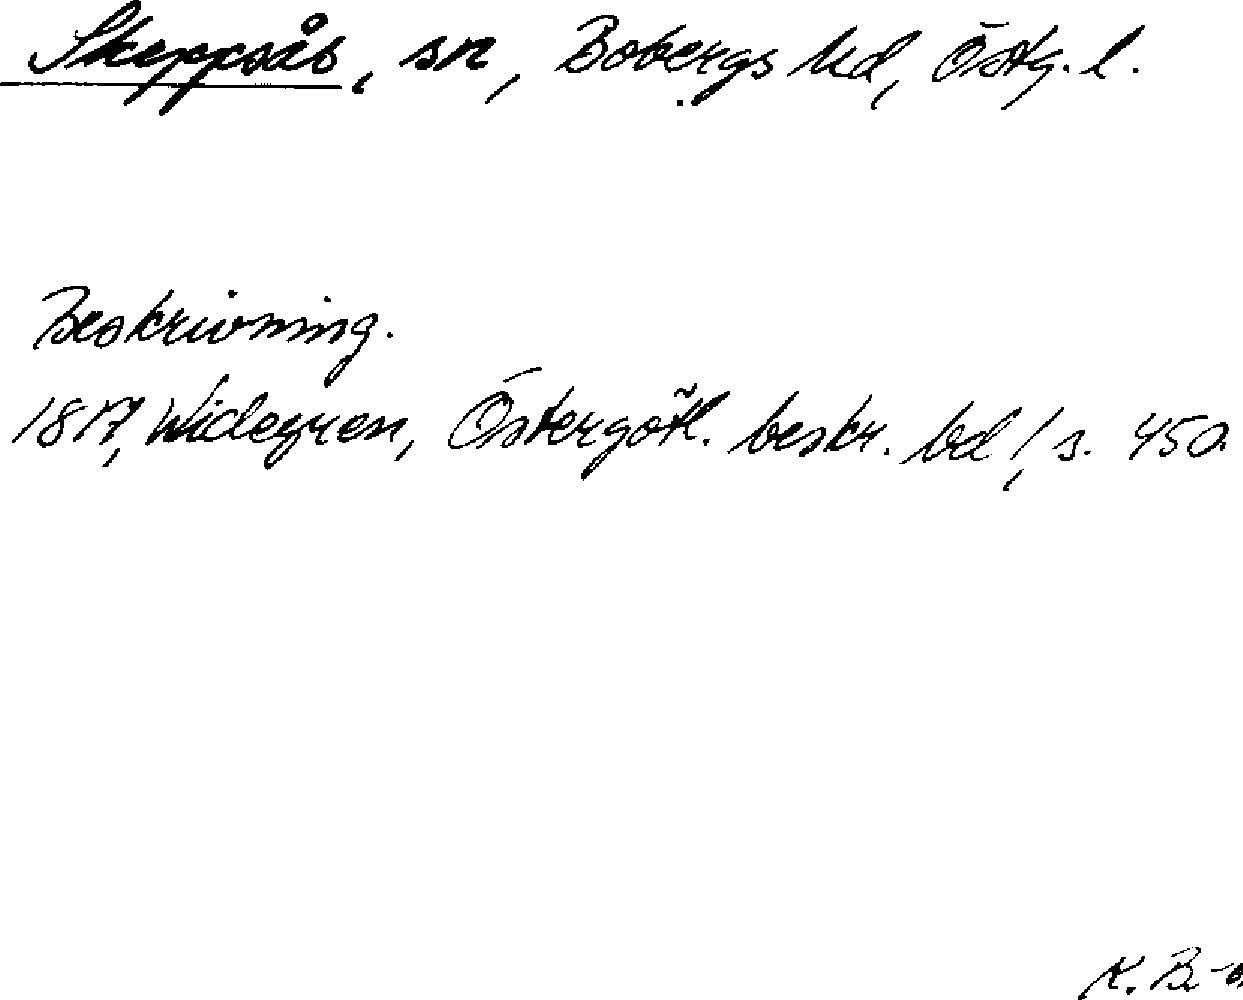 Skeppsås, sn, Bobergs hd, Östg. l.
Beskrivning.
1817, Widegren, Östergötl. beskr. bd 1, s. 450.
K. B-